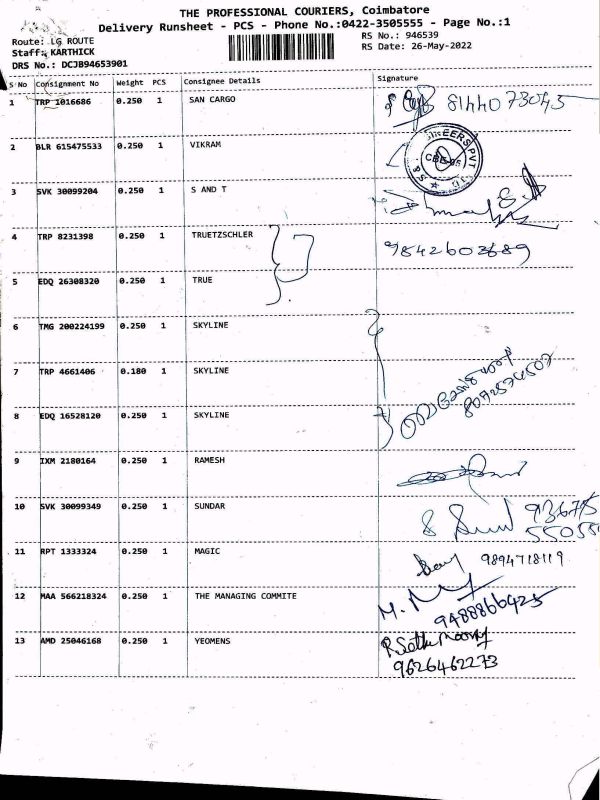 THE PROFESSIONAL COURIERS, Coimbatore
Delivery Runsheet - PCS - Phone No.:0422-3505555 - Page No.:1
Route: LG ROUTE
RS No.: 946539
Staff: KARTHICK
RS Date: 26-May-2022
DRS No.: DCJB94653901
S No Consignment No Weight PCS Consignee Details Signature
1 TRP 1016686 0.250 1 SAN CARGO 8144073045
2 BLR 615475533 0.250 1 VIKRAM
3 SVK 30099204 0.250 1 S AND T
4 TRP 8231398 0.250 1 TRUETZSCHLER 9842603689
5 EDQ 26308320 0.250 1 TRUE
6 TMG 200224199 0.250 1 SKYLINE
7 TRP 4661406 0.180 1 SKYLINE
8 EDQ 16528120 0.250 1 SKYLINE
9 IXM 2180164 0.250 1 RAMESH
10 SVK 30099349 0.250 1 SUNDAR 93675
11 RPT 1333324 0.250 1 MAGIC 9894718119
12 MAA 566218324 0.250 1 THE MANAGING COMMITE 9488866425
13 AMD 25046168 0.250 1 YEOMENS
9626462273